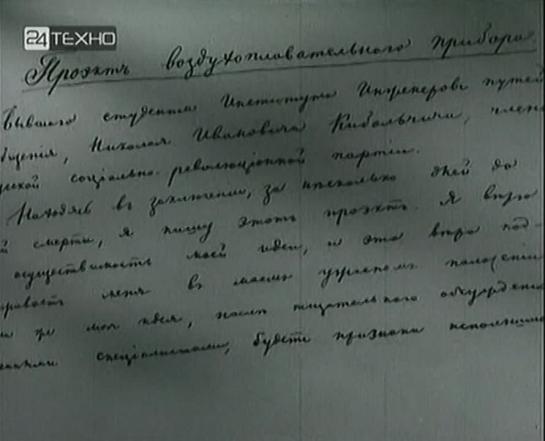 24 ТЕХНО
Проэктъ воздухоплавательнаго прибора
бывшаго студента Института Инженеровъ путей
общенія, Николая Ивановича Кибальчича, члена
ской соціально-революціонной партіи.
Находясь въ заключеніи, за нѣсколько дней до
й смерти, я пишу этотъ проэктъ. Я вѣрю
осуществимость моей идеи, и эта вѣра под-
меня въ моемъ ужасномъ положеніи
же моя идея, послѣ тщательнаго обсужденія
спеціалистами, будетъ признана исполнимой